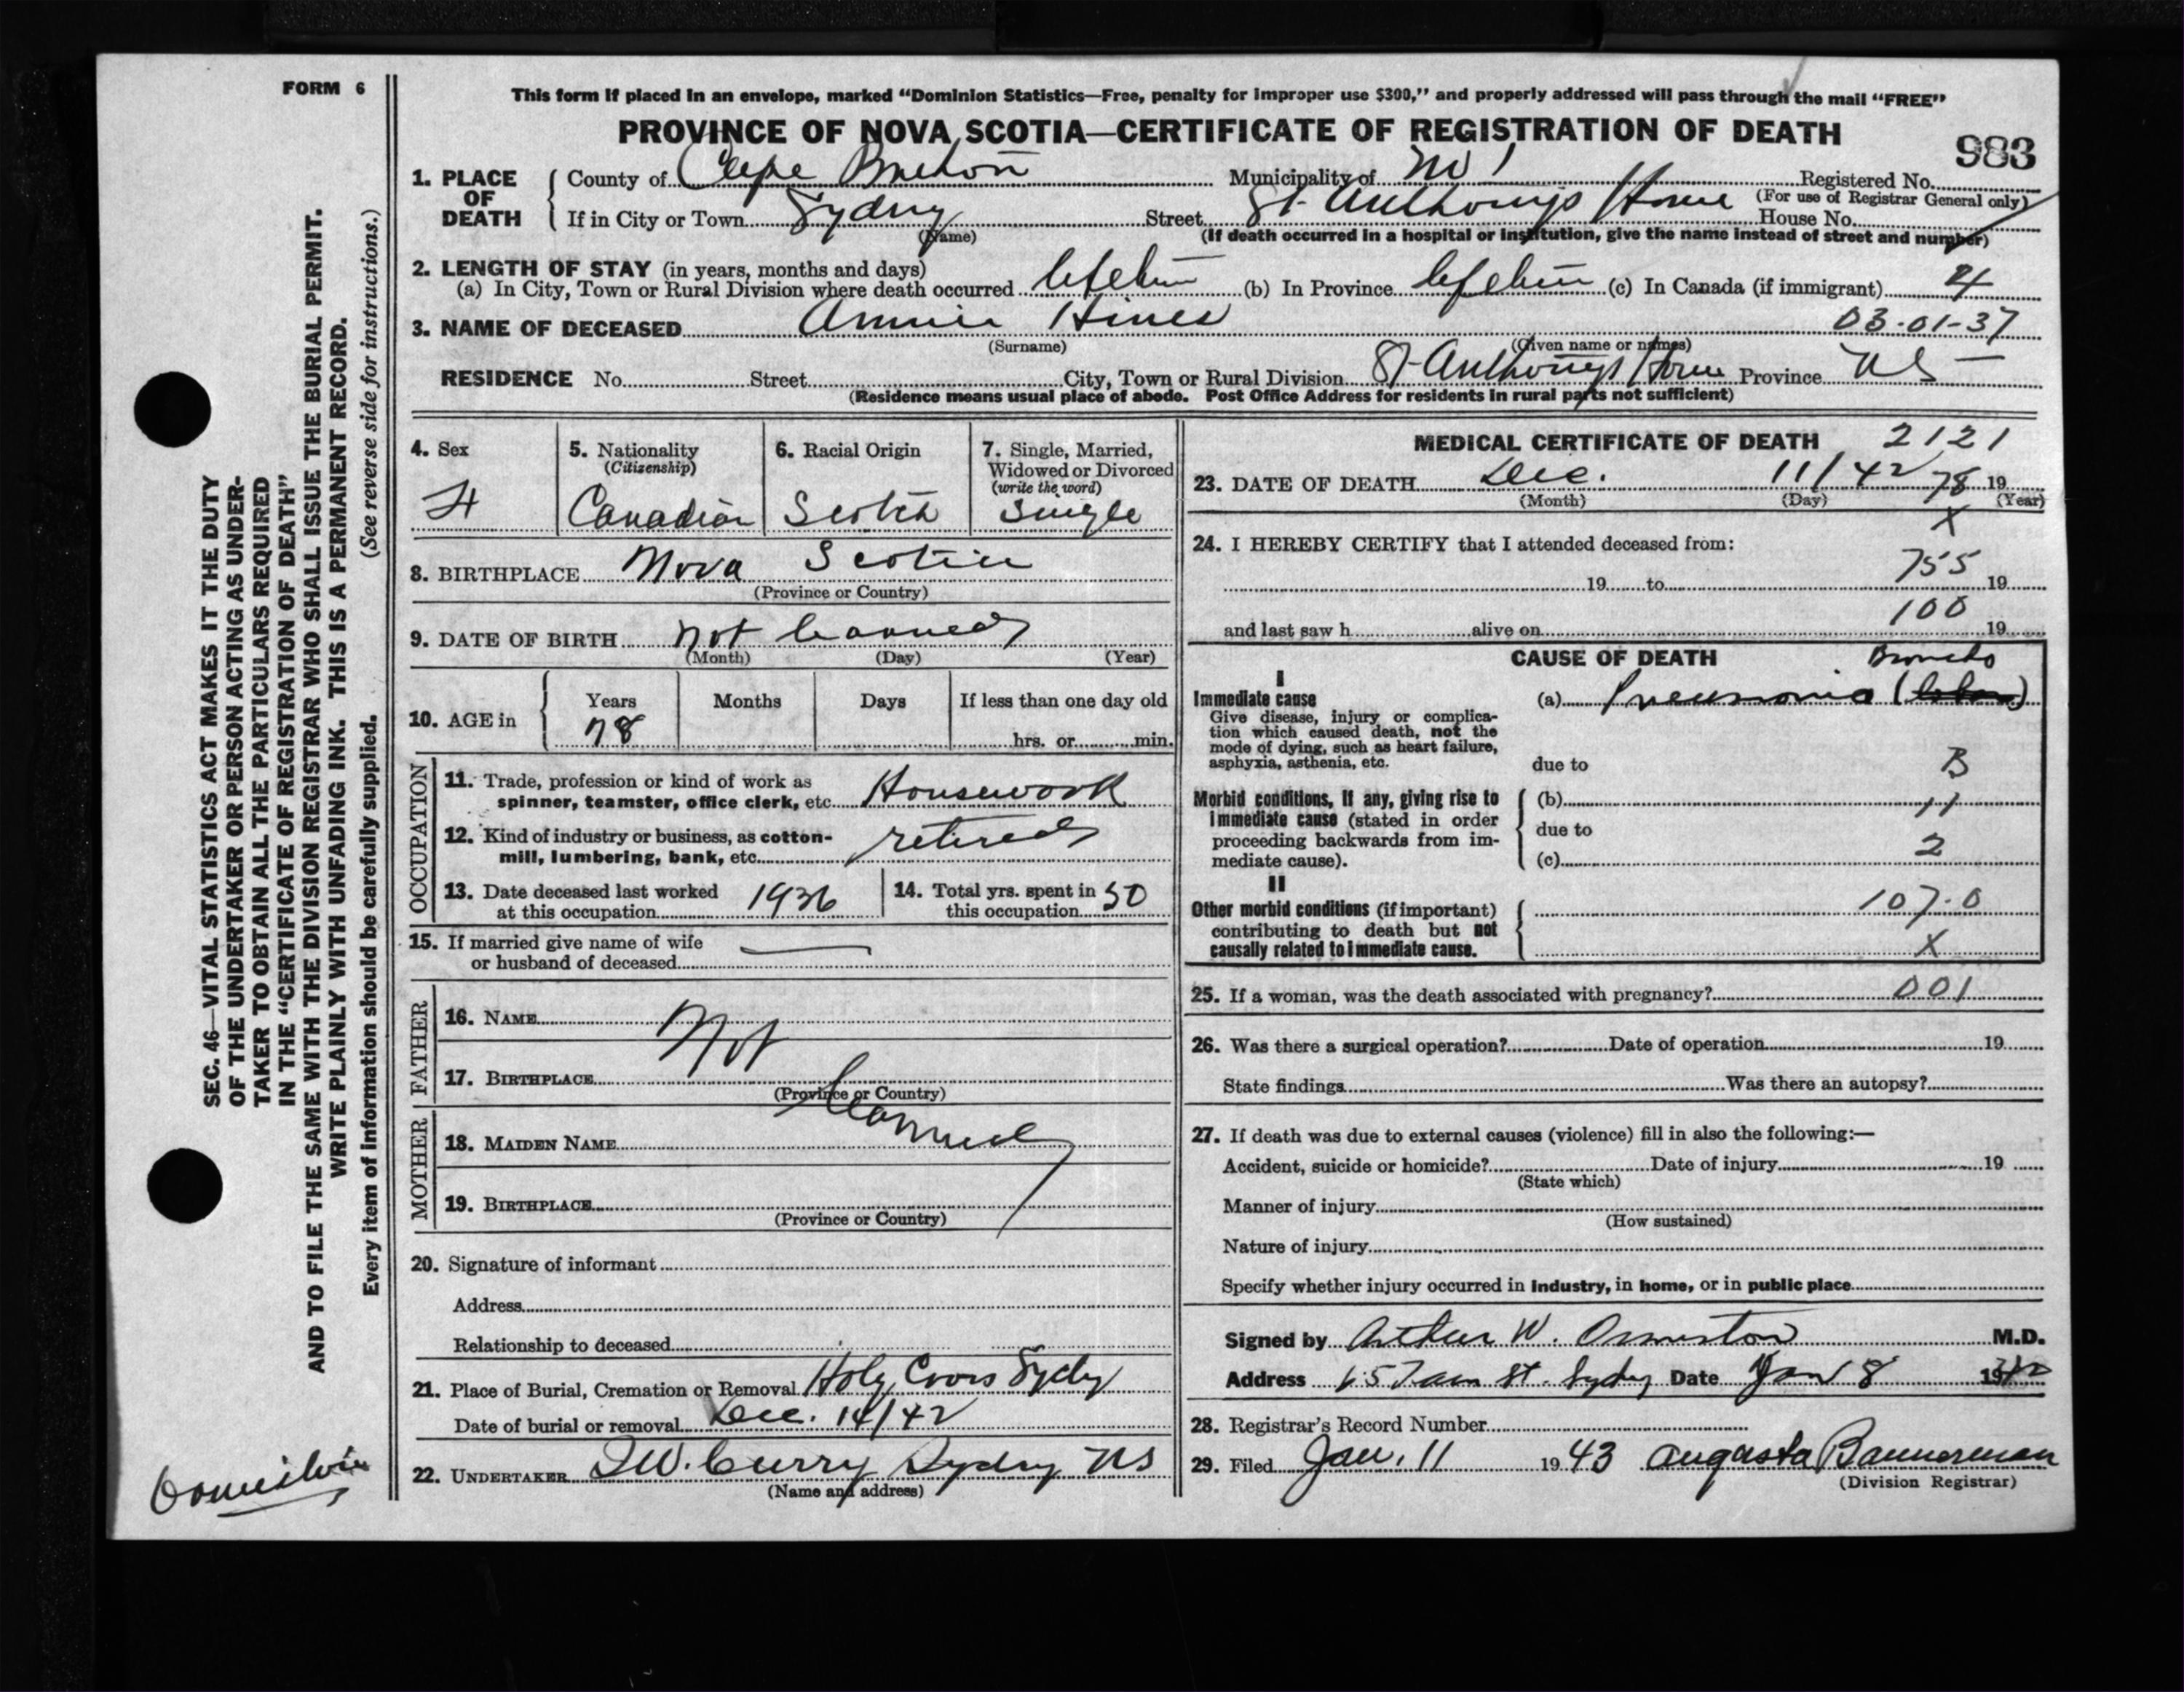 FORM 6
This form if placed in an envelope, marked “Dominion Statistics—Free, penalty for improper use $300,” and properly addressed will pass through the mail “FREE”
PROVINCE OF NOVA SCOTIA—CERTIFICATE OF REGISTRATION OF DEATH
983
1. PLACE OF DEATH
County of Cape Breton Municipality of No 1 Registered No.
(For use of Registrar General only)
If in City or Town Sydney Street St Anthonys Home House No.
(Name) (If death occurred in a hospital or institution, give the name instead of street and number)
2. LENGTH OF STAY (in years, months and days)
(a) In City, Town or Rural Division where death occurred lifetime (b) In Province lifetime (c) In Canada (if immigrant) 4
3. NAME OF DECEASED Annie Hines 03-01-37
(Surname) (Given name or names)
RESIDENCE No. Street City, Town or Rural Division St Anthonys Home Province NS
(Residence means usual place of abode. Post Office Address for residents in rural parts not sufficient)
4. Sex F
5. Nationality (Citizenship) Canadian
6. Racial Origin Scotch
7. Single, Married, Widowed or Divorced (write the word) Single
8. BIRTHPLACE Nova Scotia
(Province or Country)
9. DATE OF BIRTH not learned
(Month) (Day) (Year)
10. AGE in Years Months Days If less than one day old
78 hrs. or min.
OCCUPATION
11. Trade, profession or kind of work as spinner, teamster, office clerk, etc. Housework
12. Kind of industry or business, as cotton-mill, lumbering, bank, etc. retired
13. Date deceased last worked at this occupation 1936
14. Total yrs. spent in this occupation 50
15. If married give name of wife or husband of deceased —
FATHER
16. NAME Not
17. BIRTHPLACE
(Province or Country)
learned
MOTHER
18. MAIDEN NAME
19. BIRTHPLACE
(Province or Country)
20. Signature of informant
Address
Relationship to deceased
21. Place of Burial, Cremation or Removal Holy Cross Sydney
Date of burial or removal Dec. 14/42
22. UNDERTAKER Curry Sydney NS
(Name and address)
MEDICAL CERTIFICATE OF DEATH 2121
23. DATE OF DEATH Dec. 11/42 78 19
(Month) (Day) (Year)
X
24. I HEREBY CERTIFY that I attended deceased from:
755
19 to 19
100
and last saw h alive on 19
CAUSE OF DEATH
Broncho
I
Immediate cause
Give disease, injury or complication which caused death, not the mode of dying, such as heart failure, asphyxia, asthenia, etc.
(a) Pneumonia
due to B
Morbid conditions, if any, giving rise to immediate cause (stated in order proceeding backwards from immediate cause).
(b) 11
due to
(c) 2
II
Other morbid conditions (if important) contributing to death but not causally related to immediate cause.
107.0
X
25. If a woman, was the death associated with pregnancy? 001
26. Was there a surgical operation? Date of operation 19
State findings Was there an autopsy?
27. If death was due to external causes (violence) fill in also the following:—
Accident, suicide or homicide? Date of injury 19
(State which)
Manner of injury
(How sustained)
Nature of injury
Specify whether injury occurred in industry, in home, or in public place
Signed by Arthur W. Ormiston M.D.
Address St. Sydney Date Jan 8 19
28. Registrar’s Record Number
29. Filed Jan. 11 1943 Augusta Bannerman
(Division Registrar)
SEC. 46—VITAL STATISTICS ACT MAKES IT THE DUTY
OF THE UNDERTAKER OR PERSON ACTING AS UNDER-
TAKER TO OBTAIN ALL THE PARTICULARS REQUIRED
IN THE “CERTIFICATE OF REGISTRATION OF DEATH”
AND TO FILE THE SAME WITH THE DIVISION REGISTRAR WHO SHALL ISSUE THE BURIAL PERMIT.
WRITE PLAINLY WITH UNFADING INK. THIS IS A PERMANENT RECORD.
Every item of information should be carefully supplied. (See reverse side for instructions.)